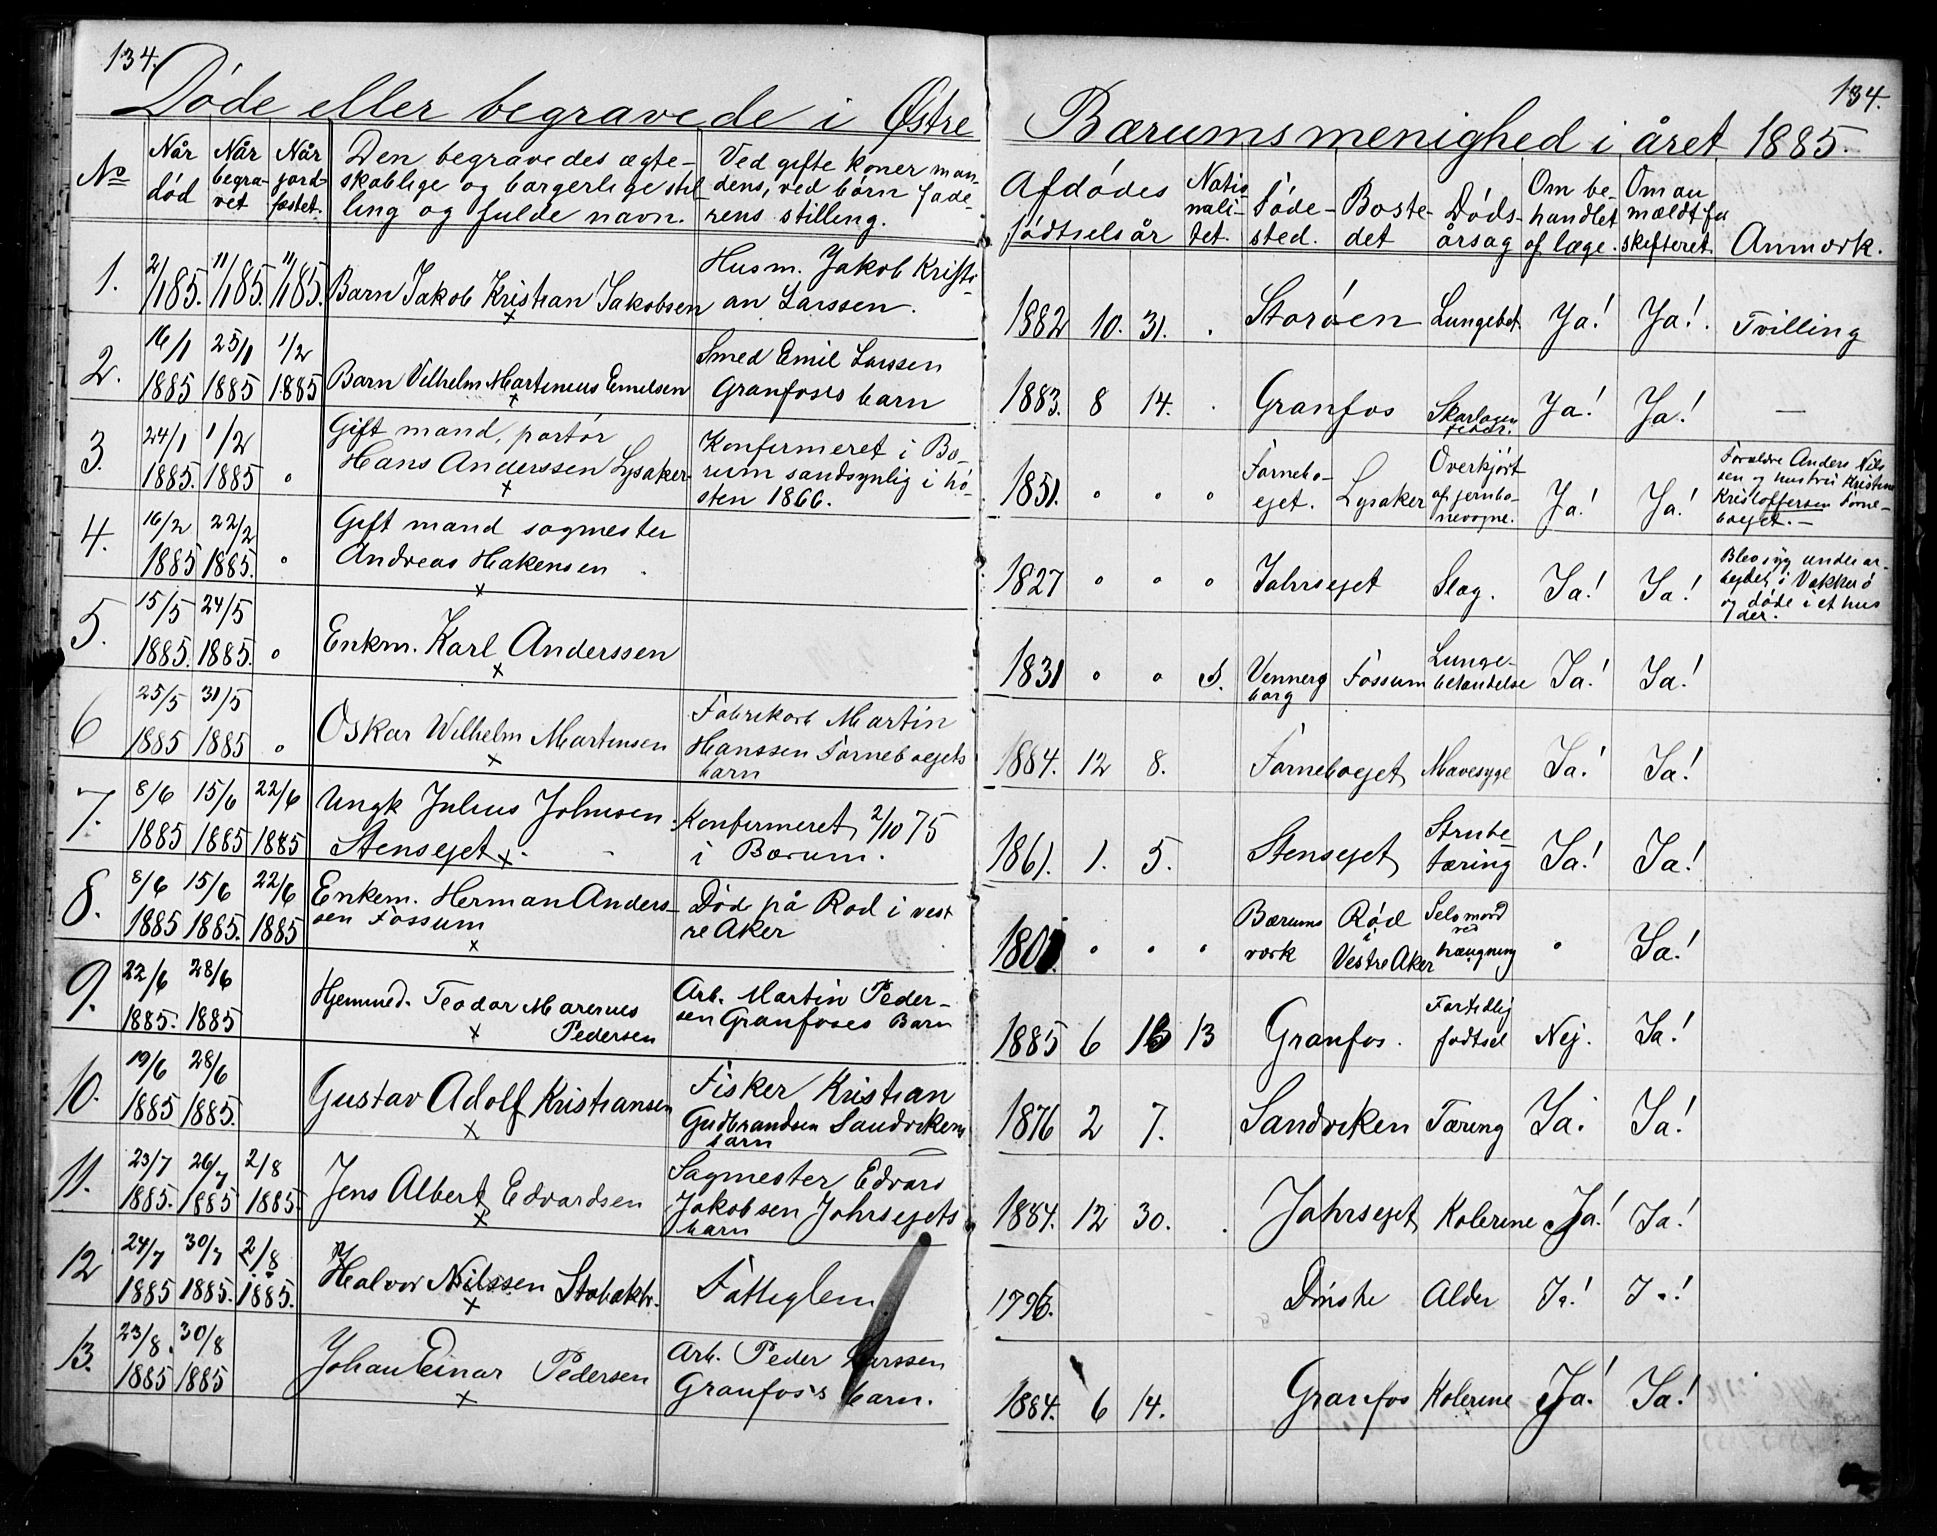 134.
134.
Døde eller begravede i Østre Bærumsmenighed i året 1885.
No
Når død
Når begravet
Når jordfæstet.
Den begravedes ægte-
skablige og borgerlige stil-
ling og fulde navn.
Ved gifte koner man-
dens, ved børn fade-
rens stilling.
Afdødes fødselsår
Natio
nali-
tet.
Føde-
sted.
Boste-
det
Døds-
årsag
Om be-
handlet
af læge.
Om an
mældt fu
skifteret.
Anmærk.
1. 2/1 85. 11/1 85. 11/1 85. Barn Jakob Kristian Jakobsen
Husm. Jakob Kristi-
an Larssen.
1882 10. 31. . Storøen Lungebet. Ja! Ja! Tvilling
2. 16/1 1885 25/1 1885 1/2 1885 Barn Vilhelm Martinius Emilsen
Smed Emil Larssen
Granfos's barn
1883. 8 14. . Granfos Skarlagen
feber. Ja! Ja! —
3. 24/1 1885. 1/2 1885 o Gift mand, portør
Hans Anderssen Lysaker.
Konfirmeret i Bæ-
rum sandsynlig i hø-
sten 1866.
1851. o o o Fornebo-
ejet. Lysaker Overkjørt
af jernba-
nevogne. Ja! Ja!
Forældre Anders Nils
sen og hustru Kristine
Kristoffersen Forne-
boejet. —
4. 16/2 1885 22/2 1885. o Gift mand sagmester
Andreas Hakensen
1827 o o o Jahrsejet Slag. Ja! Ja!
Blev syg under ar-
bejdet i Vækkerø
og døde i et hus
der.
5. 15/5 1885. 24/5 1885. o Enkm. Karl Anderssen
1831 o o S. Vennerg
borg Fossum Lunge-
betændelse Ja! Ja!
6 25/5 1885 31/5 1885 o Oskar Wilhelm Martinsen
Fabrikarb Martin
Hanssen Forneboejets
barn
1884. 12 8. Forneboejet Mavesyge Ja! Ja!
7. 8/6 1885 15/6 1885 22/6 1885 Ungk Julius Johnsen
Stensejet
Konfirmeret 2/10 75
i Bærum.
1861. 1. 5. Stensejet Strube-
tæring Ja! Ja!
8. 8/6 1885 15/6 1885. 22/6 1885 Enkem. Herman Anders-
sen Fossum
Død på Rød i vest
re Aker
o o o Bærums
værk Rød
i
Vestre Aker Selvmord
ved
hængning o Ja!
9. 22/6 1885. 28/6 1885 Hjemmed. Teodor Marenius
Pedersen
Arb. Martin Peder-
sen Granfoses Barn
1885 6 13 13 Granfos. Fortidlig
fødsel Nej. Ja!
10. 19/6 1885 28/6 1885. Gustav Adolf Kristiansen
Fisker Kristian
Gudbrandsen Sandvikens
barn
1876 2 7. Sandviken Tæring Ja! Ja!
11. 23/7 1885. 26/7 1885 2/8 1885. Jens Albert Edvardsen
Sagmester Edvard
Jakobsen Jahrsejets
barn
1884. 12 30. . Jahrsejet Kolerine Ja! Ja!
12 24/7 1885 30/7 1885. 2/8 1885. Halvor Nilssen Stabækbr.
Fattiglem.
1796. Alder Ja! Ja!
13. 23/8. 1885 30/8 1885 Johan Einar Pedersen
Arb. Peder Larssen
Granfos's barn.
1884. 6 14. Granfos Kolerine Ja! Ja!